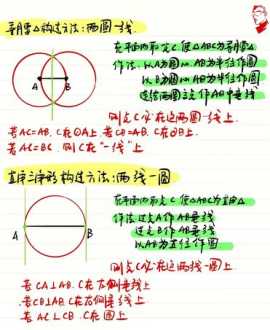 寻等腰△构造方法：两圆一线.
在平面内前定C,使△ABC为等腰△
作法：以A为圆心,AB为半径作圆
以B为圆心,AB为半径作圆
连结两圆交点作AB中垂线
则点C必在这两圆一线上.
若AC=AB. C在⊙A上. 若CB=AB. C在⊙B上.
若AC=BC. 则C在“一线”上
A B
直角三角形构造方法：两线一圆
在平面内前定C 使△ABC为直角△
作法过点A作AB垂线
过点B作AB垂线
以AB为直径作圆
则点C必在这两线一圆上.
若CA⊥AB. C在左侧垂线上
若CB⊥AB C在右侧垂线上
若AC⊥CB. C在圆上
A B